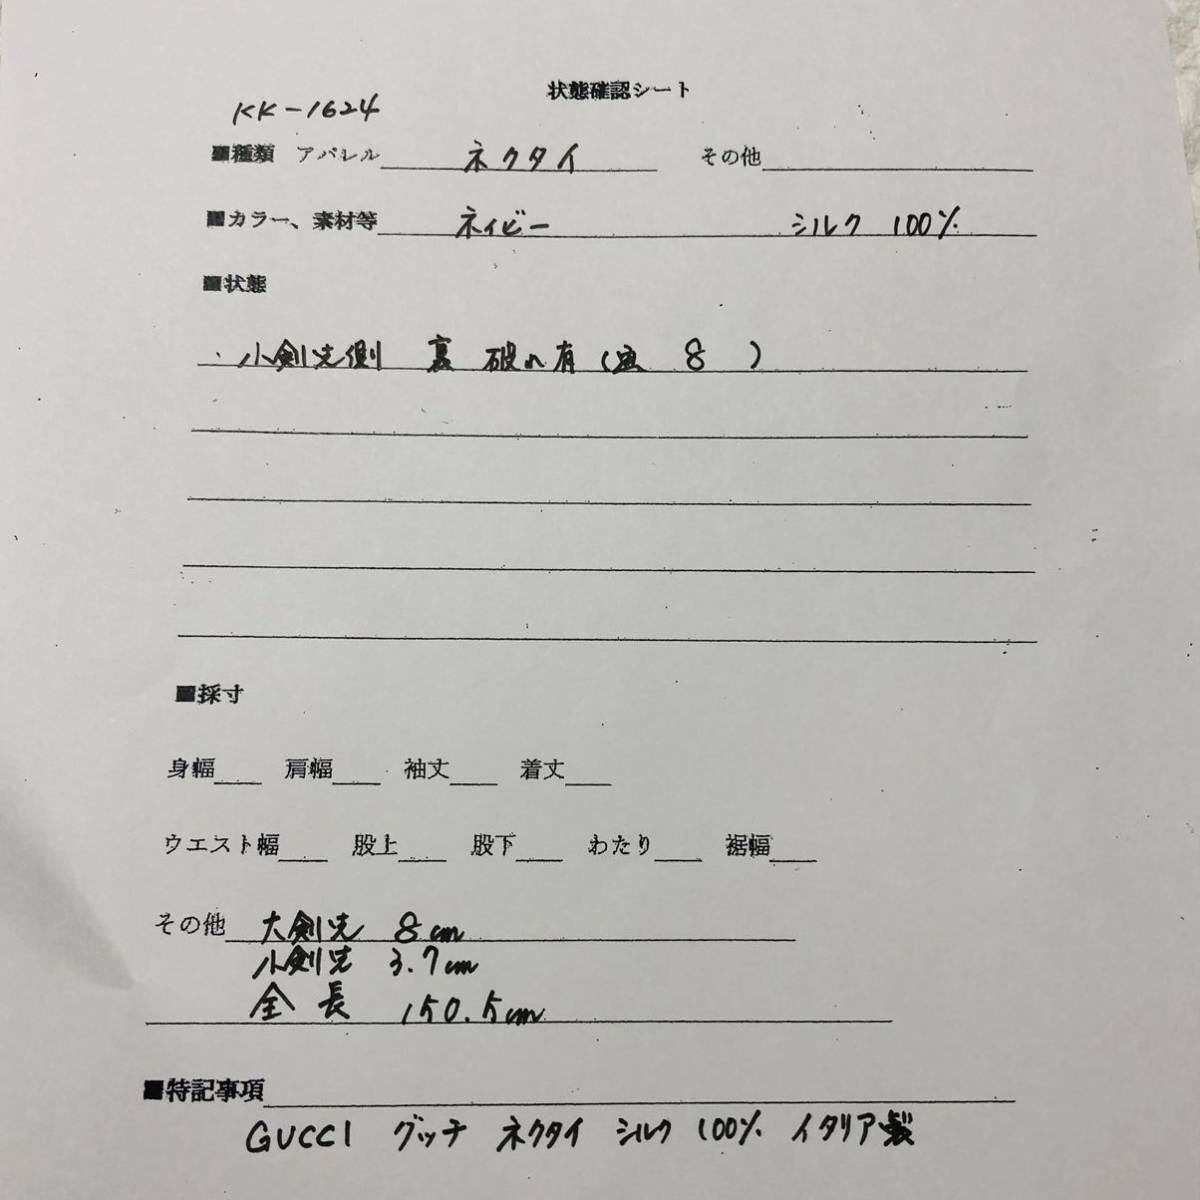 状態確認シート
KK-1624
■種類 アパレル ネクタイ その他
■カラー、素材等 ネイビー シルク 100%
■状態
・小剣先側 裏 破れ有( 8 )
■採寸
身幅 肩幅 袖丈 着丈
ウエスト幅 股上 股下 わたり 裾幅
その他 大剣先 8cm
小剣先 3.7cm
全長 150.5cm
■特記事項
GUCCI グッチ ネクタイ シルク 100% イタリア製